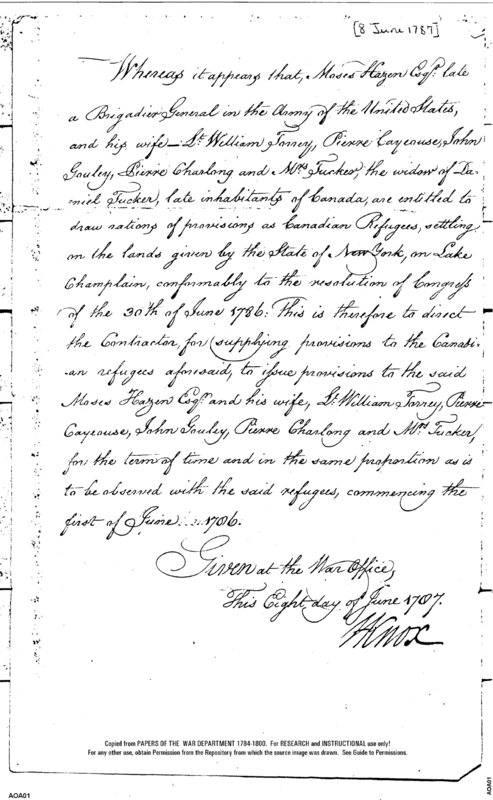 [8 June 1787]
Whereas it appears that, Moses Hazen Esqr. late
a Brigadier General in the Army of the United States,
and his wife — Lt. William Torrey, Pierre Cayeouse, John
Gouley, Pierre Charlong and Mrs. Tucker, the widow of Da-
niel Tucker, late inhabitants of Canada, are entitled to
draw rations of provisions as Canadian Refugees, settling
on the lands given by the State of New York, on Lake
Champlain, conformably to the resolution of Congress
of the 30th of June 1786: This is therefore to direct
the Contractor, for supplying provisions to the Canadi-
-an refugees aforesaid, to issue provisions to the said
Moses Hazen Esqr. and his wife, Lt. William Torrey, Pierre
Cayeouse, John Gouley, Pierre Charlong and Mrs. Tucker,
for the term of time and in the same proportion as is
to be observed with the said refugees, commencing the
first of June 1786.
Given at the War Office,
This Eight day of June 1787.
HKnox
Copied from PAPERS OF THE WAR DEPARTMENT 1784-1800. For RESEARCH and INSTRUCTIONAL use only!
For any other use, obtain Permission from the Repository from which the source image was drawn. See Guide to Permissions.
AOA01
AOA01